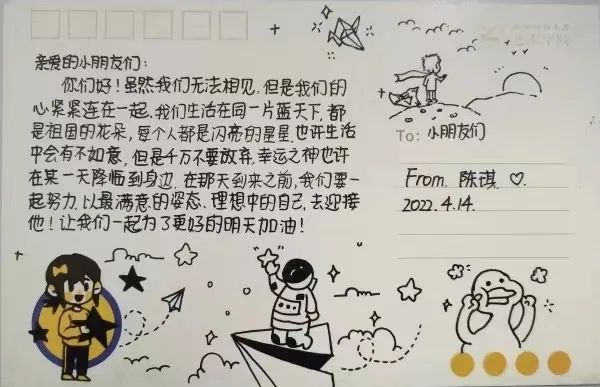 亲爱的小朋友们：
你们好！虽然我们无法相见，但是我们的
心紧紧连在一起，我们生活在同一片蓝天下，都
是祖国的花朵，每个人都是闪亮的星星，也许生活
中会有不如意，但是千万不要放弃，幸运之神也许
在某一天降临到身边，在那天到来之前，我们要一
起努力，以最满意的姿态、理想中的自己，去迎接
他！让我们一起为了更好的明天加油！
To: 小朋友们
From. 陈琪 ♡.
2022.4.14.